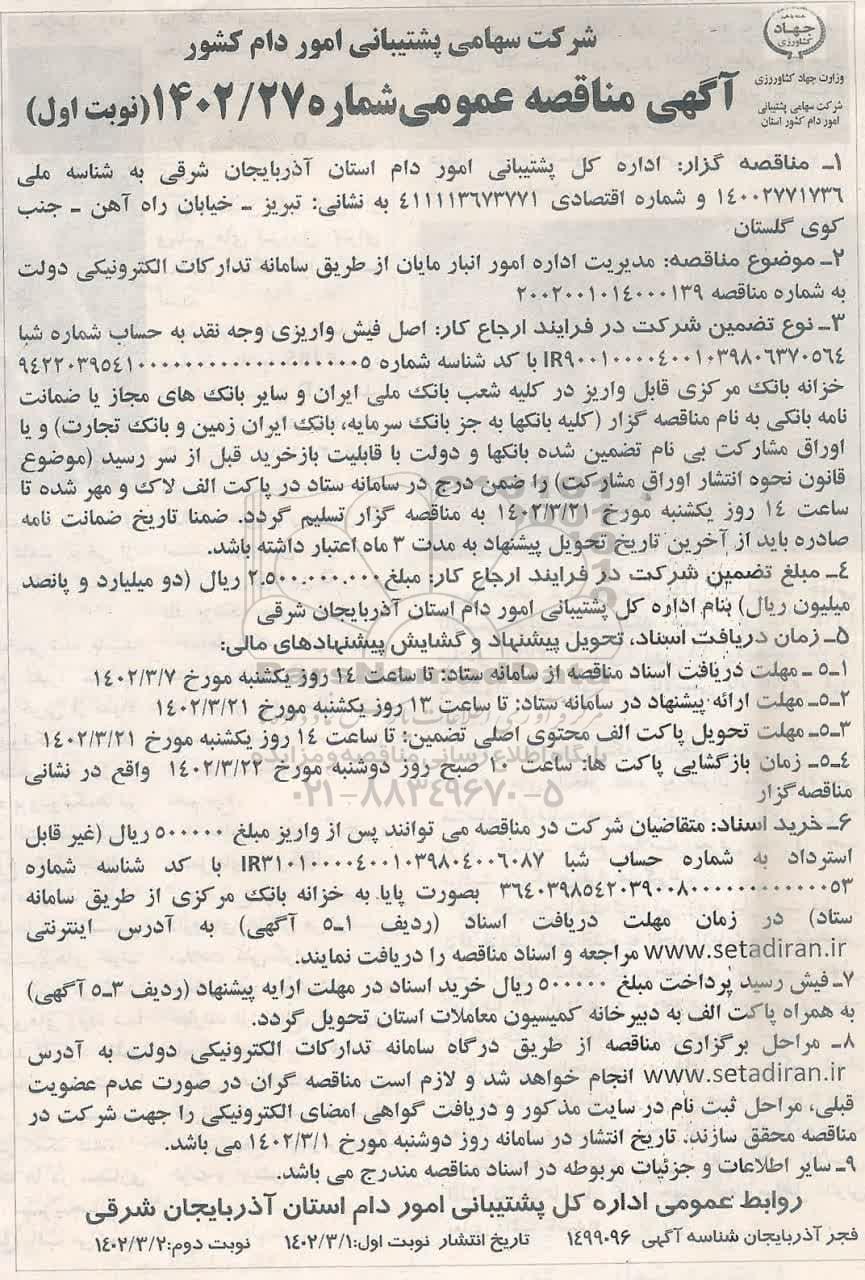 جهاد کشاورزی
وزارت جهاد کشاورزی
شرکت سهامی پشتیبانی
امور دام کشور استان
شرکت سهامی پشتیبانی امور دام کشور
آگهی مناقصه عمومی شماره ۱۴۰۲/۲۷ (نوبت اول)
۱ـ مناقصه گزار: اداره کل پشتیبانی امور دام استان آذربایجان شرقی به شناسه ملی
۱۴۰۰۲۷۷۱۷۳۶ و شماره اقتصادی ۴۱۱۱۱۳۶۷۳۷۷۱ به نشانی: تبریز ـ خیابان راه آهن ـ جنب
کوی گلستان
۲ـ موضوع مناقصه: مدیریت اداره امور انبار مایان از طریق سامانه تدارکات الکترونیکی دولت
به شماره مناقصه ۲۰۰۲۰۰۱۰۱۴۰۰۰۱۳۹
۳ـ نوع تضمین شرکت در فرایند ارجاع کار: اصل فیش واریزی وجه نقد به حساب شماره شبا
IR۹۰۰۱۰۰۰۰۴۰۰۱۰۳۹۸۰۶۳۷۰۵۶۴ با کد شناسه شماره
خزانه بانک مرکزی قابل واریز در کلیه شعب بانک ملی ایران و سایر بانک های مجاز یا ضمانت
نامه بانکی به نام مناقصه گزار (کلیه بانکها به جز بانک سرمایه، بانک ایران زمین و بانک تجارت) و یا
اوراق مشارکت بی نام تضمین شده بانکها و دولت با قابلیت بازخرید قبل از سر رسید (موضوع
قانون نحوه انتشار اوراق مشارکت) را ضمن درج در سامانه ستاد در پاکت الف لاک و مهر شده تا
ساعت ۱۴ روز یکشنبه مورخ ۱۴۰۲/۳/۲۱ به مناقصه گزار تسلیم گردد. ضمنا تاریخ ضمانت نامه
صادره باید از آخرین تاریخ تحویل پیشنهاد به مدت ۳ ماه اعتبار داشته باشد.
۴ـ مبلغ تضمین شرکت در فرایند ارجاع کار: مبلغ ۲.۵۰۰.۰۰۰.۰۰۰ ریال (دو میلیارد و پانصد
میلیون ریال) بنام اداره کل پشتیبانی امور دام استان آذربایجان شرقی
۵ـ زمان دریافت اسناد، تحویل پیشنهاد و گشایش پیشنهادهای مالی:
۱ـ۵ ـ مهلت دریافت اسناد مناقصه از سامانه ستاد: تا ساعت ۱۴ روز یکشنبه مورخ ۱۴۰۲/۳/۷
۲ـ۵ـ مهلت ارائه پیشنهاد در سامانه ستاد: تا ساعت ۱۳ روز یکشنبه مورخ ۱۴۰۲/۳/۲۱
۳ـ۵ـ مهلت تحویل پاکت الف محتوی اصلی تضمین: تا ساعت ۱۴ روز یکشنبه مورخ ۱۴۰۲/۳/۲۱
۴ـ۵ـ زمان بازگشایی پاکت ها: ساعت ۱۰ صبح روز دوشنبه مورخ ۱۴۰۲/۳/۲۲ واقع در نشانی
مناقصه گزار
۰۲۱-۸۸۳۴۹۶۷۰-۵
۶ـ خرید اسناد: متقاضیان شرکت در مناقصه می توانند پس از واریز مبلغ ۵۰۰۰۰۰ ریال (غیر قابل
استرداد به شماره حساب شبا IR۳۱۰۱۰۰۰۰۴۰۰۱۰۳۹۸۰۴۰۰۶۰۸۷ با کد شناسه شماره
بصورت پایا به خزانه بانک مرکزی از طریق سامانه
ستاد) در زمان مهلت دریافت اسناد (ردیف ۱ـ۵ آگهی) به آدرس اینترنتی
www.setadiran.ir مراجعه و اسناد مناقصه را دریافت نمایند.
۷ـ فیش رسید پرداخت مبلغ ۵۰۰۰۰۰ ریال خرید اسناد در مهلت ارایه پیشنهاد (ردیف ۳ـ۵ آگهی)
به همراه پاکت الف به دبیرخانه کمیسیون معاملات استان تحویل گردد.
۸ـ مراحل برگزاری مناقصه از طریق درگاه سامانه تدارکات الکترونیکی دولت به آدرس
www.setadiran.ir انجام خواهد شد و لازم است مناقصه گران در صورت عدم عضویت
قبلی، مراحل ثبت نام در سایت مذکور و دریافت گواهی امضای الکترونیکی را جهت شرکت در
مناقصه محقق سازند. تاریخ انتشار در سامانه روز دوشنبه مورخ ۱۴۰۲/۳/۱ می باشد.
۹ـ سایر اطلاعات و جزئیات مربوطه در اسناد مناقصه مندرج می باشد.
روابط عمومی اداره کل پشتیبانی امور دام استان آذربایجان شرقی
فجر آذربایجان شناسه آگهی ۱۴۹۹۰۹۶ تاریخ انتشار نوبت اول: ۱۴۰۲/۳/۱ نوبت دوم: ۱۴۰۲/۳/۲